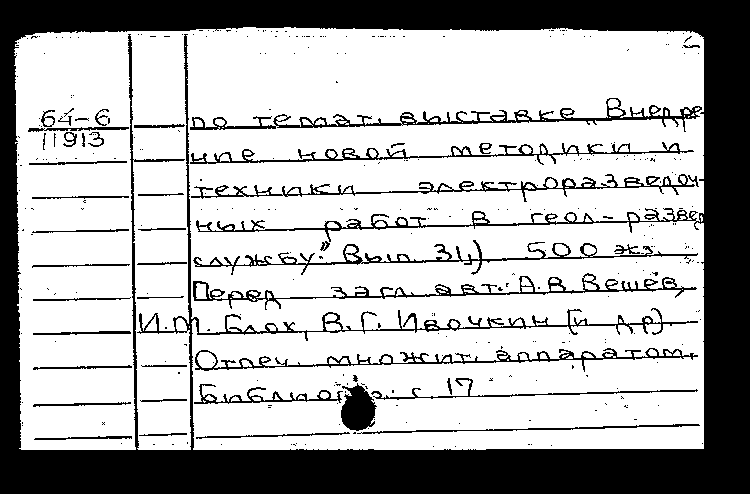 64-6
11913
по темат. выставке „Внедре-
ние новой методики и
техники электроразведоч-
ных работ в геол-развед
службу." Вып. 31,) 500 экз.
Перед загл. авт.: А.В. Вешев,
И.М. Блох, В.Г. Ивочкин [и др].
Отпеч. множит. аппаратом.
с. 17